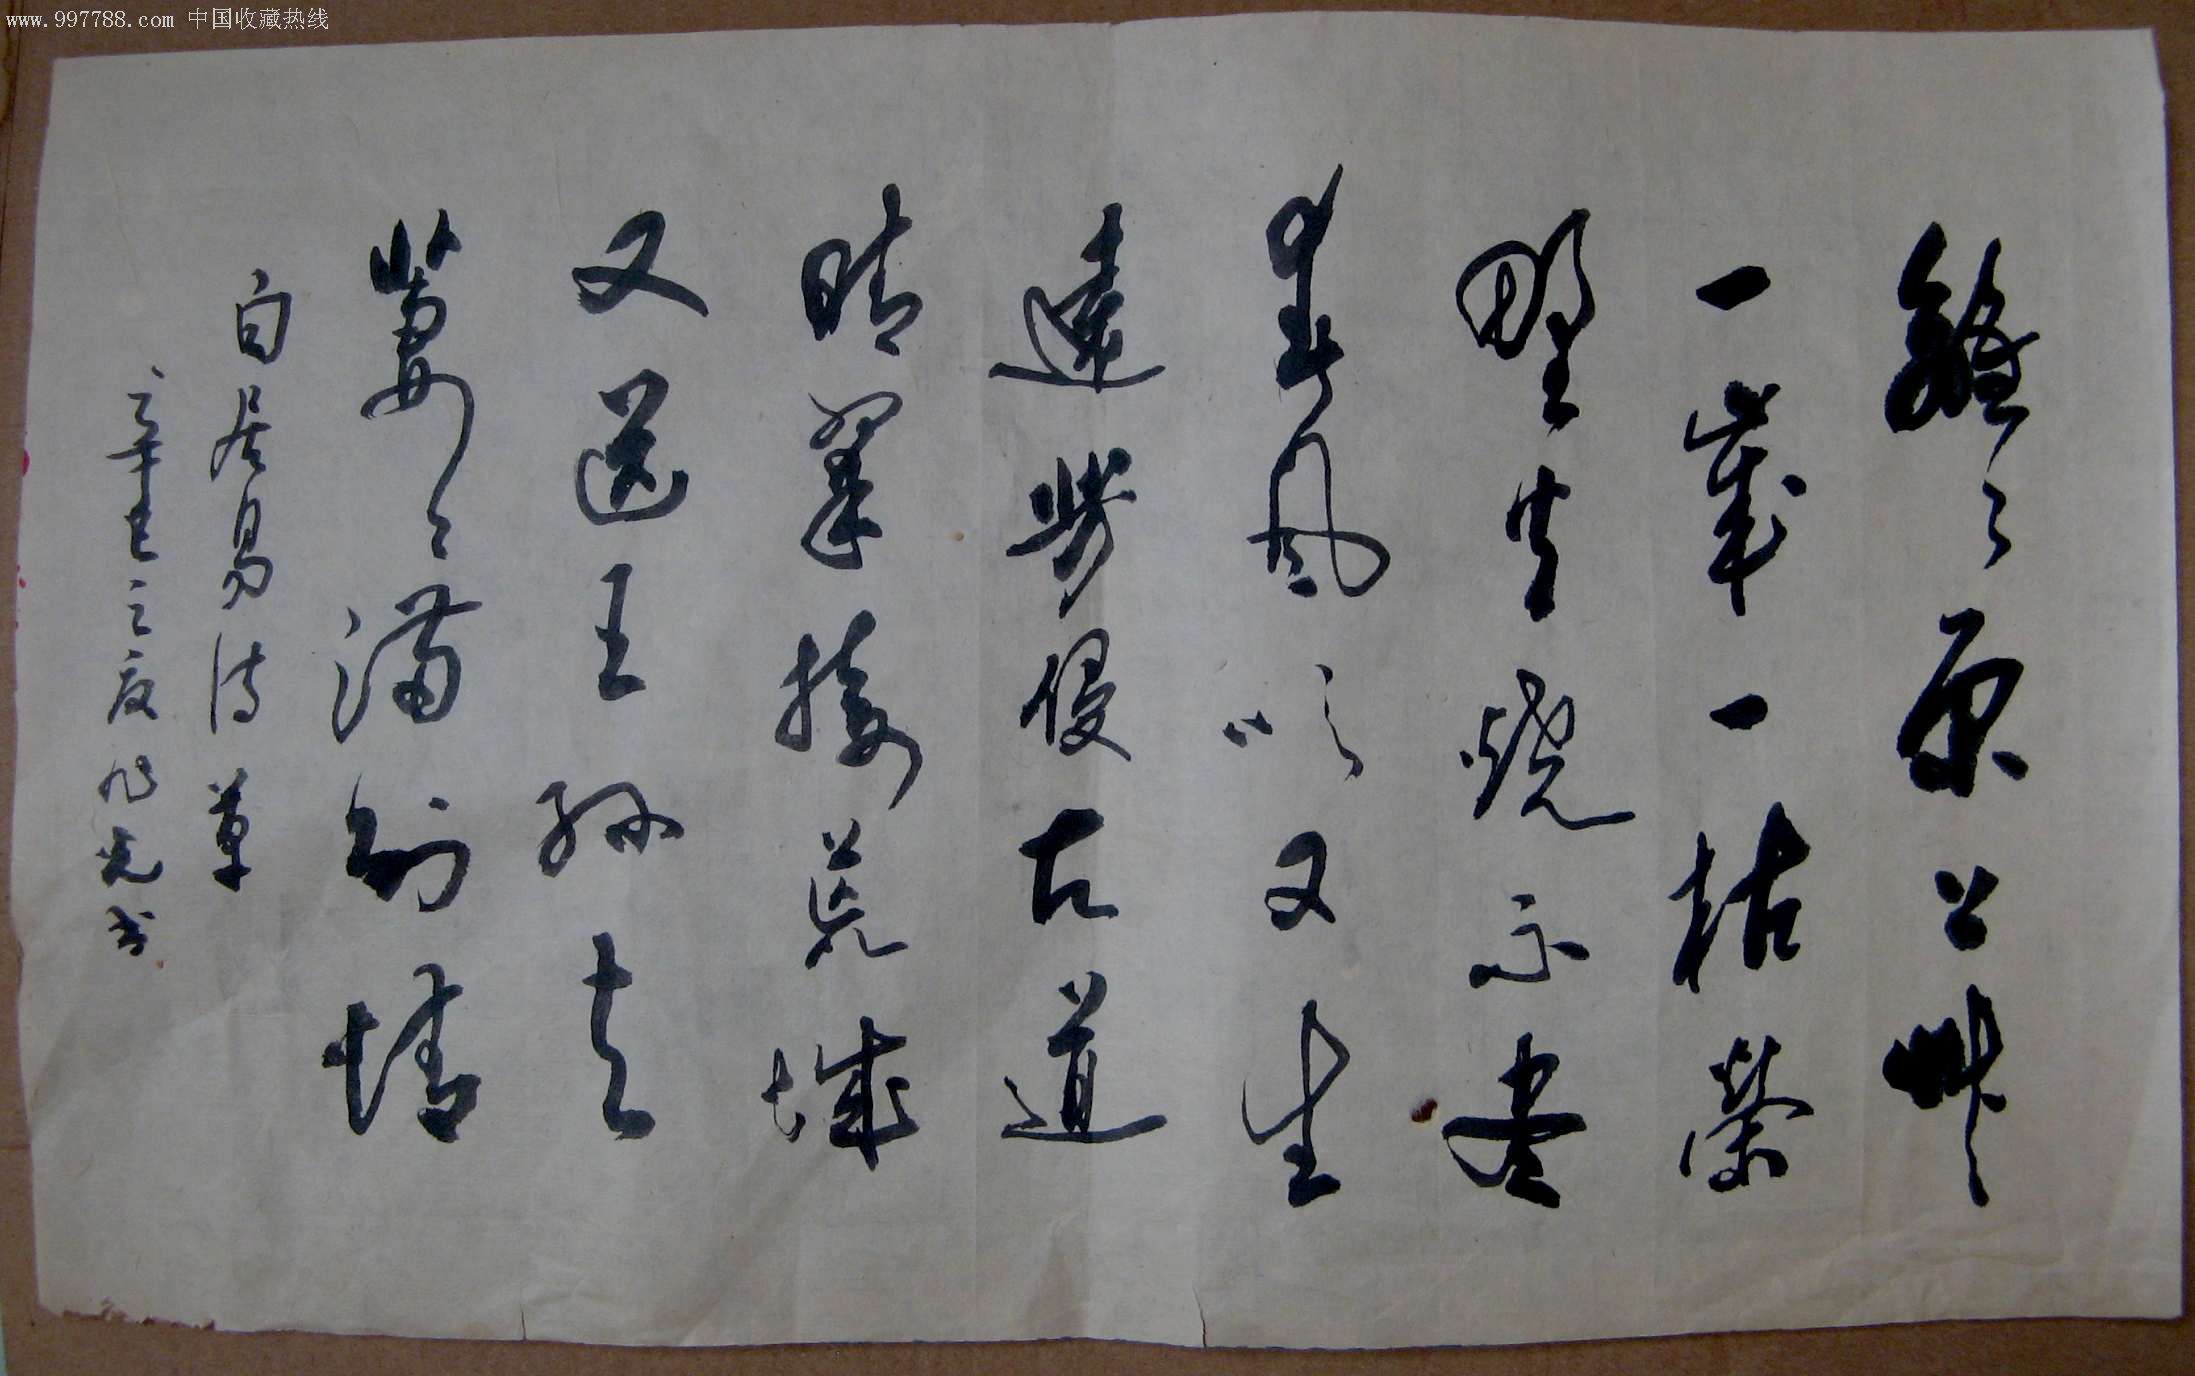 www.997788.com 中国收藏热线
離々原上艸
一歲一枯榮
野火燒不盡
春風吹又生
遠芳侵古道
晴翠接荒城
又送王孫去
萋々滿別情
白居易诗草
辛巳之夏旭光书